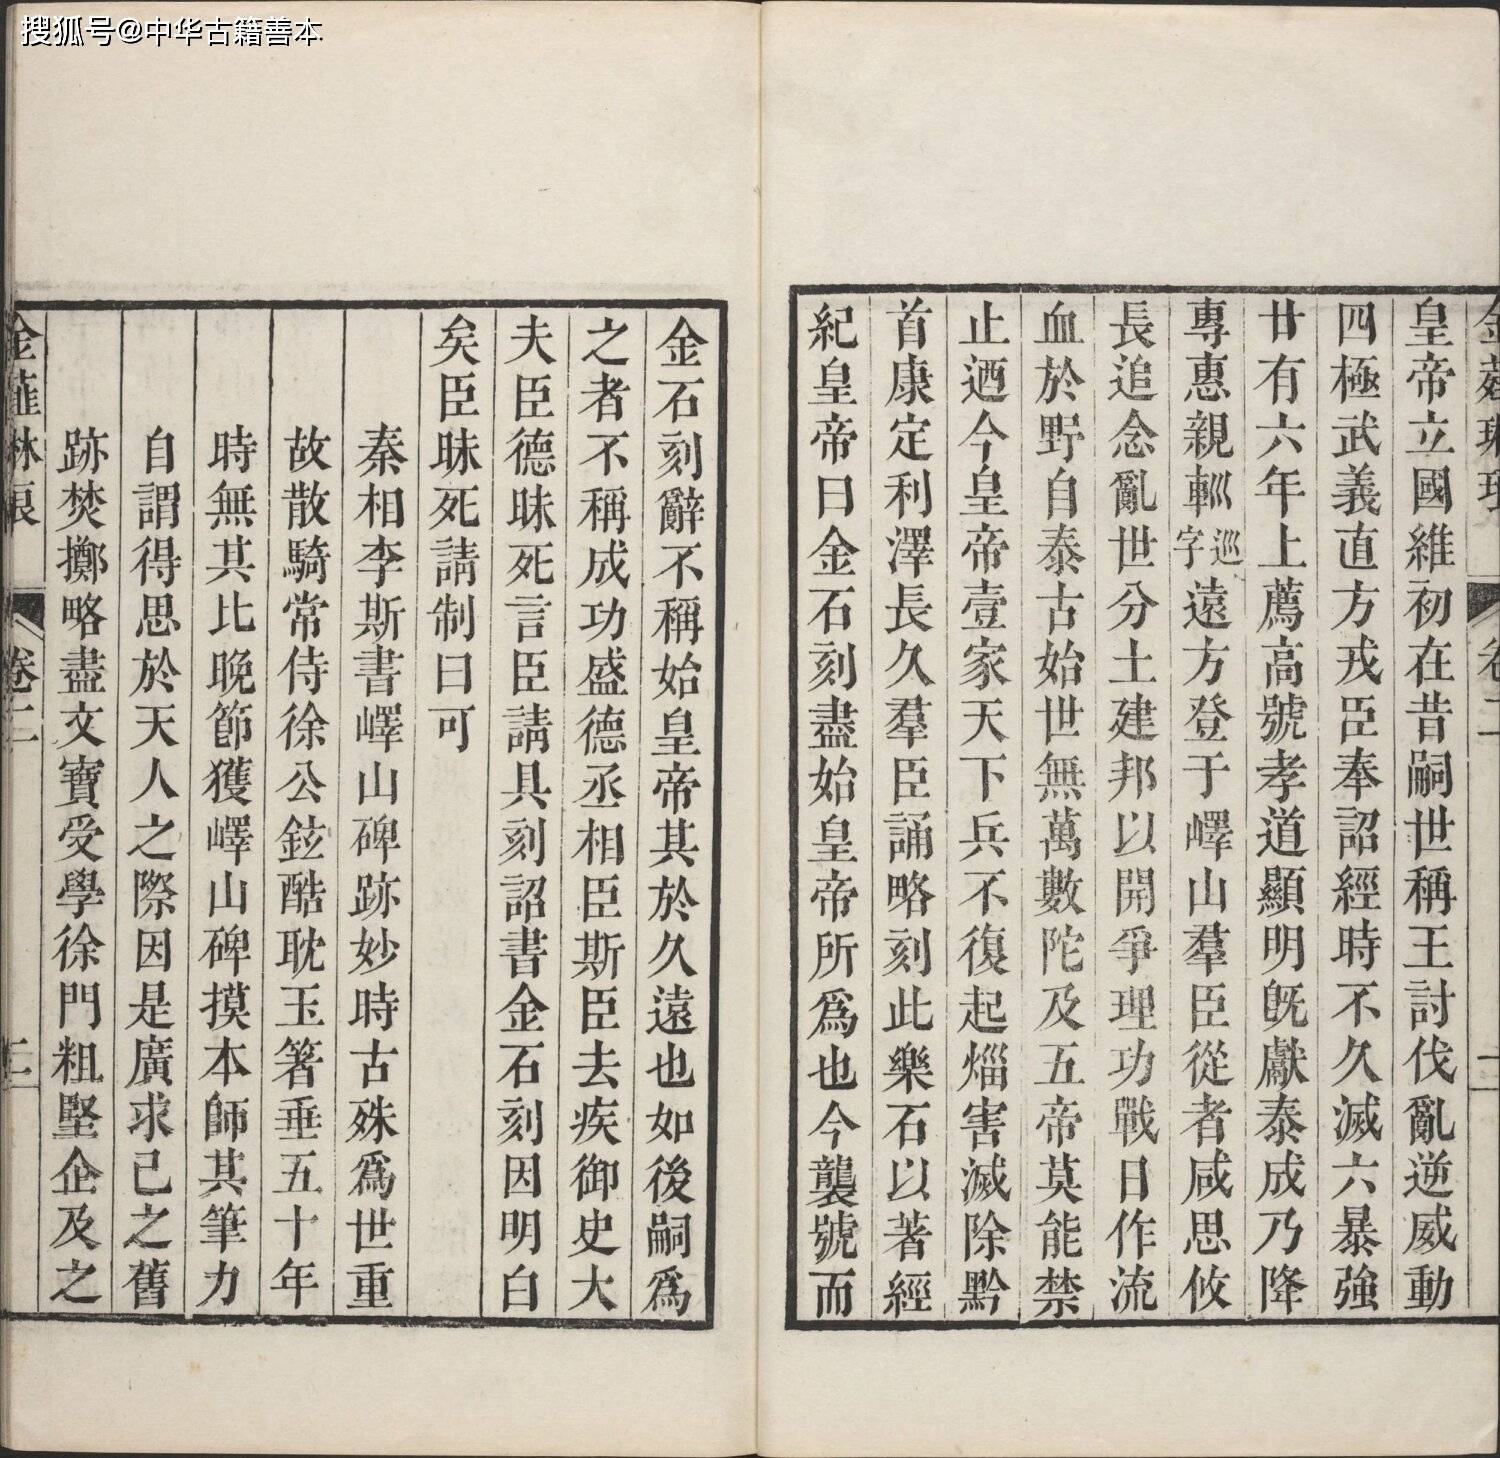 搜狐号@中华古籍善本
皇帝立國維初在昔嗣世稱王討伐亂逆威動
四極武義直方戎臣奉詔經時不久滅六暴強
廿有六年上薦高號孝道顯明旣獻泰成乃降
專惠親巡字遠方登于嶧山羣臣從者咸思攸
長追念亂世分土建邦以開爭理功戰日作流
血於野自泰古始世無萬數陀及五帝莫能禁
止迺今皇帝壹家天下兵不復起害滅除黔
首康定利澤長久羣臣誦略刻此樂石以著經
紀皇帝曰金石刻盡始皇帝所爲也今襲號而
金石刻辭不稱始皇帝其於久遠也如後嗣爲
之者不稱成功盛德丞相臣斯臣去疾御史大
夫臣德昧死言臣請具刻詔書金石刻因明白
矣臣昧死請制曰可
秦相李斯書嶧山碑跡妙時古殊爲世重
故散騎常侍徐公鉉酷耽玉箸垂五十年
時無其比晚節獲嶧山碑摸本師其筆力
自謂得思於天人之際因是廣求己之舊
跡焚擲略盡文寶受學徐門粗堅企及之
金薤琳琅 卷二 三